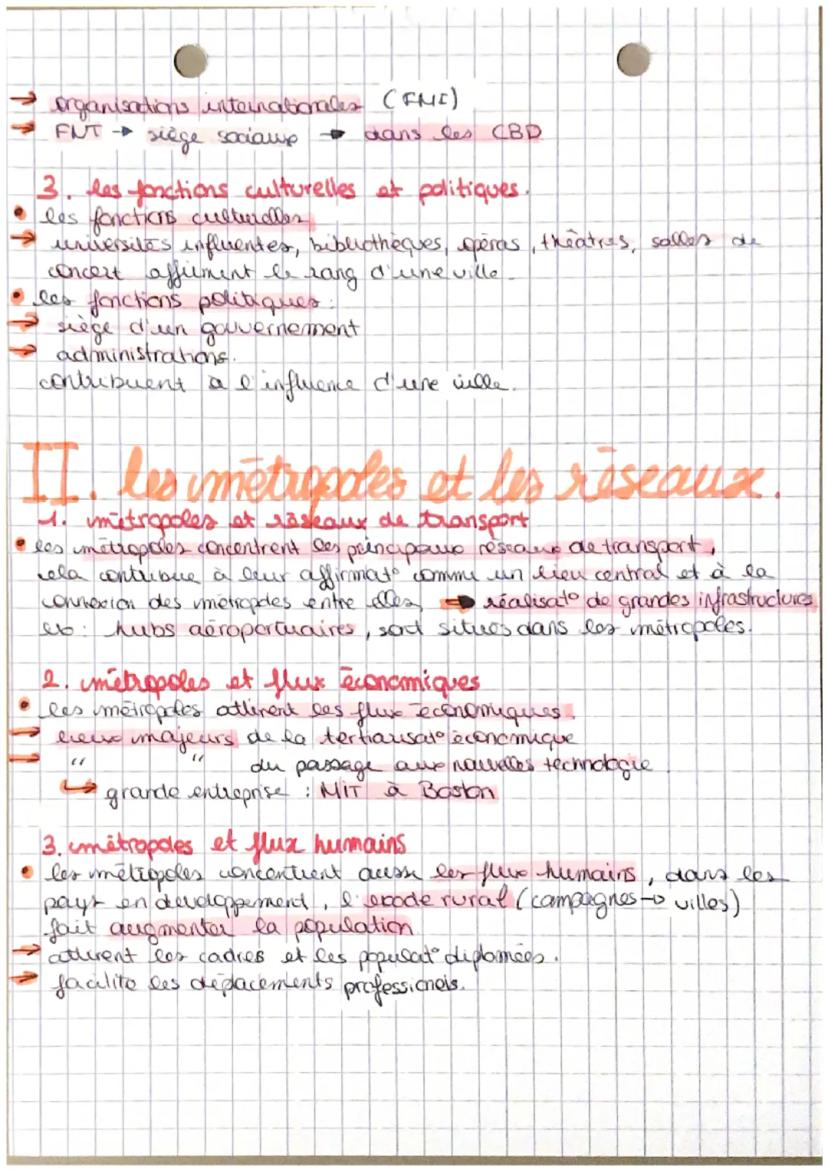 → organisations internationales (FMI)
→ FNT → siège sociaux → dans les CBD
3. les fonctions culturelles et politiques.
• les fonctions culturelles
→ universités influentes, bibliothèques, opéras, théâtres, salles de
concert affirment le rang d'une ville.
• les fonctions politiques :
→ siège d'un gouvernement
→ administrations.
contribuent à l'influence d'une ville.
II. les métropoles et les réseaux.
1. métropoles et réseaux de transport
• les métropoles concentrent les principaux réseaux de transport,
cela contribue à leur affirmat° comme un lieu central et à la
connexion des métropoles entre elles, → réalisat° de grandes infrastructures
ex : hubs aéroportuaires, sont situés dans les métropoles.
2. métropoles et flux économiques
• les métropoles attirent les flux économiques.
→ lieux majeurs de la tertiarisat° économique
→ " " du passage aux nouvelles technologie
↳ grande entreprise : MIT à Boston
3. métropoles et flux humains
• les métropoles concentrent aussi les flux humains, dans les
pays en développement, l'exode rural (campagnes → villes)
fait augmenter la population
→ attirent les cadres et les populat° diplomées.
→ facilite les déplacements professionels.